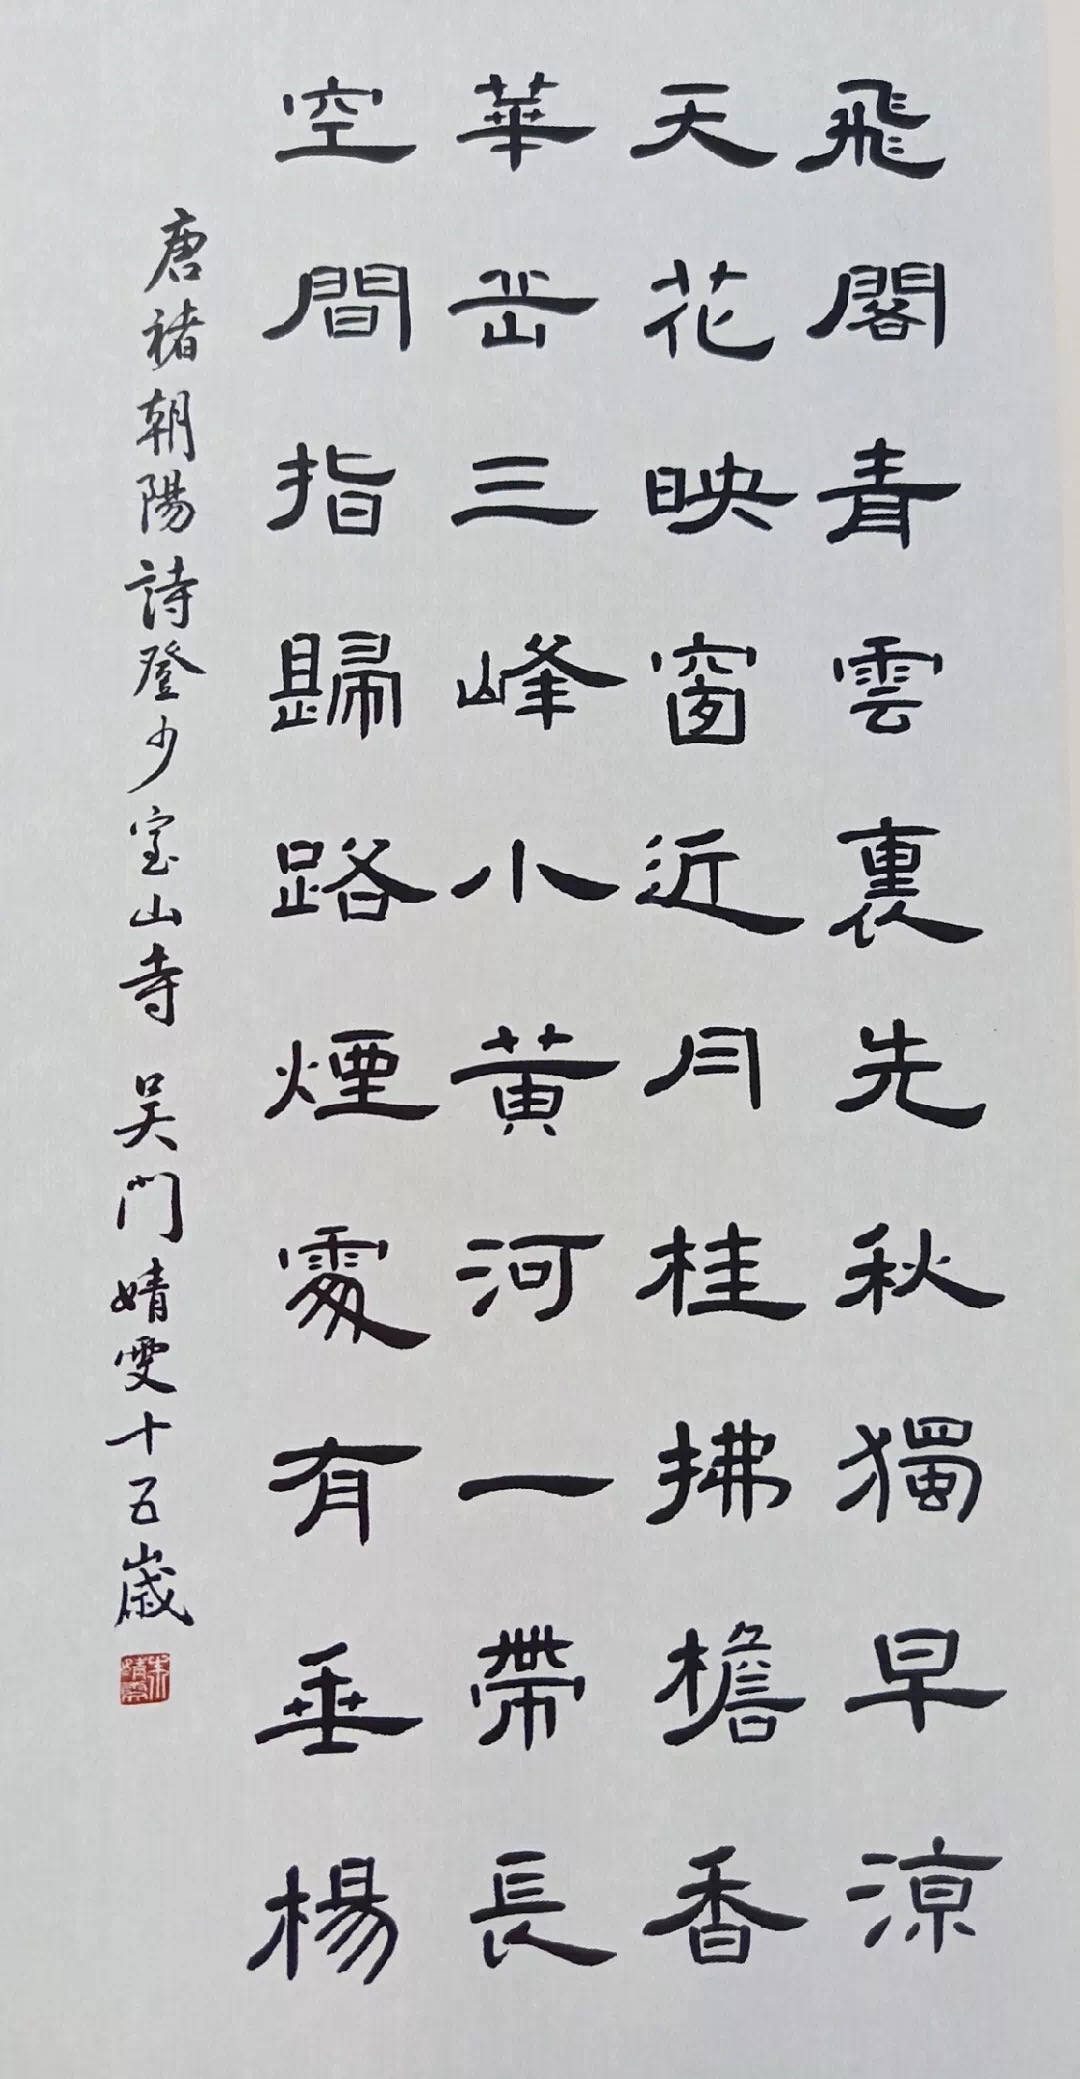 飛閣青雲裏先秋獨早涼
天花映窗近月桂拂檐香
華岳三峰小黄河一帶長
空間指歸路煙處有垂楊
唐褚朝陽詩登少室山寺 吴門婧雯十五歲
朱婧雯